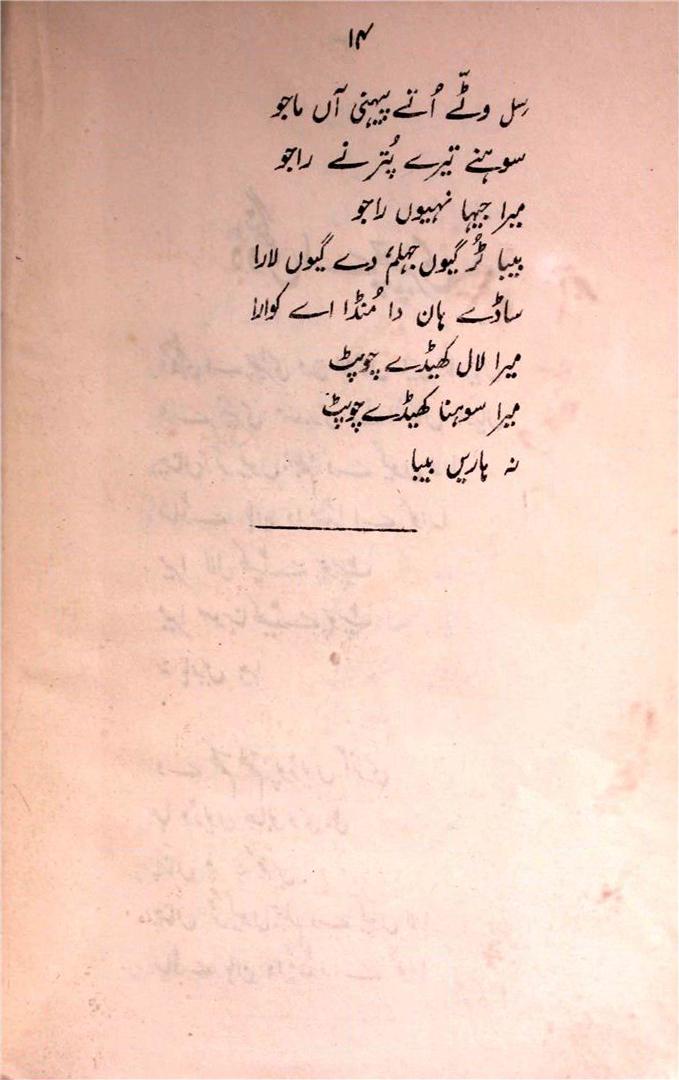 ۱۴
سِل وٹّے اُتے پیہنی آں ماجو
سوہنے تیرے پُتر نے راجو
میرا جیہا نہیوں راجو
بیبا ٹُر گیوں جہلم، دے گیوں لارا
ساڈے ہان دا مُنڈا اے کوارا
میرا لال کھیڈے چوپٹ
میرا سوہنا کھیڈے چوپٹ
نہ ہاریں بیبا